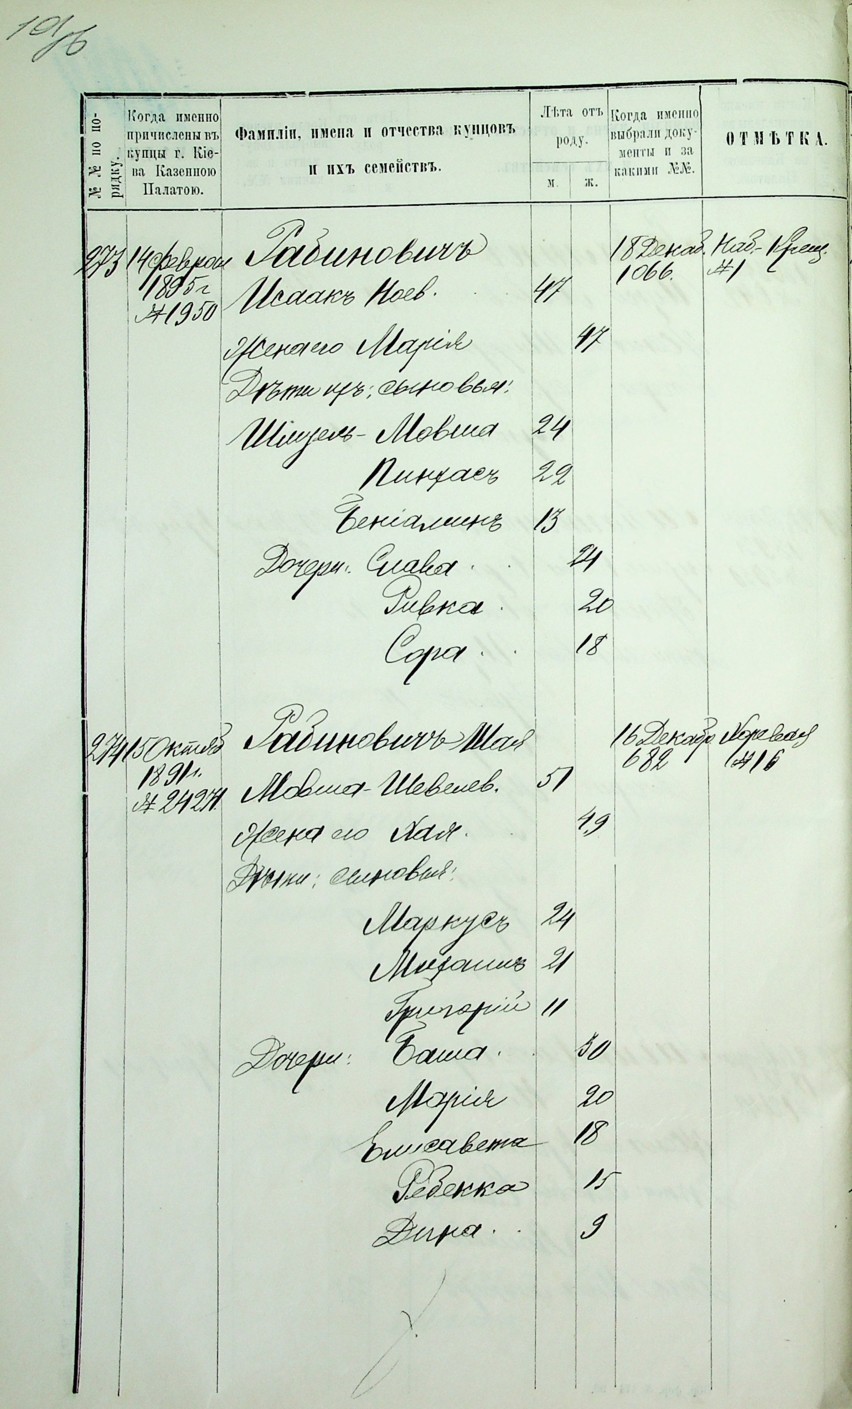 № № по по-
рядку.
Когда именно
причислены въ
купцы г. Кіе-
ва Казенною
Палатою.
Фамиліи, имена и отчества купцовъ
и ихъ семействъ.
Лѣта отъ
роду.
м.
ж.
Когда именно
выбрали доку-
менты и за
какими №№.
ОТМѢТКА.
273 14 феврал Рабиновичъ 18 Декаб. Наб.-Крещ.
1895 г № 1950 Исаакъ Ноев. 47 1066. № 1
Жена его Марія 47
Дѣти ихъ: сыновья:
Шмуель-Мовша 24
Пинхасъ 22
Беніаминъ 13
Дочери: Слава 24
Ривка 20
Сора 18
274 15 Октяб Рабиновичъ Шая 16 Декабр Хоревая
1891 г. № 24271 Мовша-Шевелев. 51 682 № 16
Жена его Хая. 49
Дѣти: сыновья:
Маркусъ 24
Михаилъ 21
Григорій 11
Дочери: Баша 30
Марія 20
Елисавета 18
Ребекка 15
Дина 9